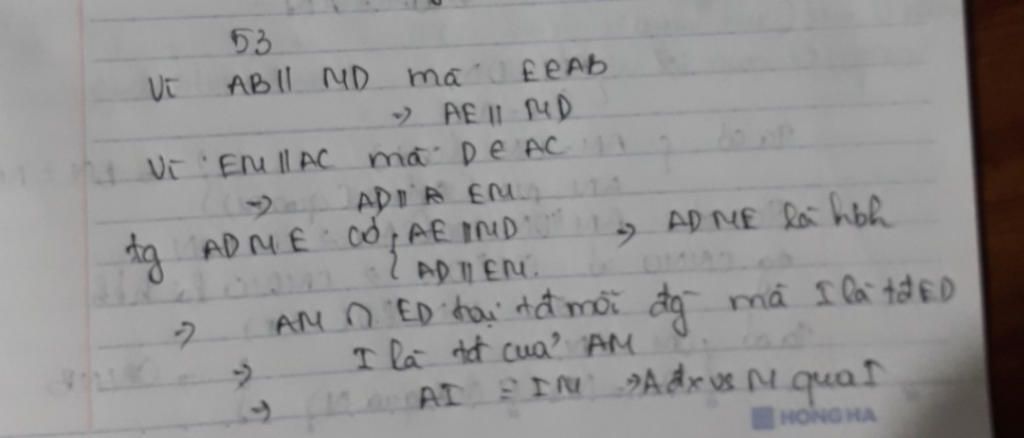 53
Vì AB // MD mà E ∈ AB
→ AE // MD
Vì EM // AC mà D ∈ AC
→ AD // EM
tg ADME có { AE // MD → ADME là hbh
{ AD // EM.
→ AM ∩ ED tại tđ mỗi đg mà I là tđ ED
→ I là tđ của AM
→ AI = IM → A đx vs M qua I
HONG HA